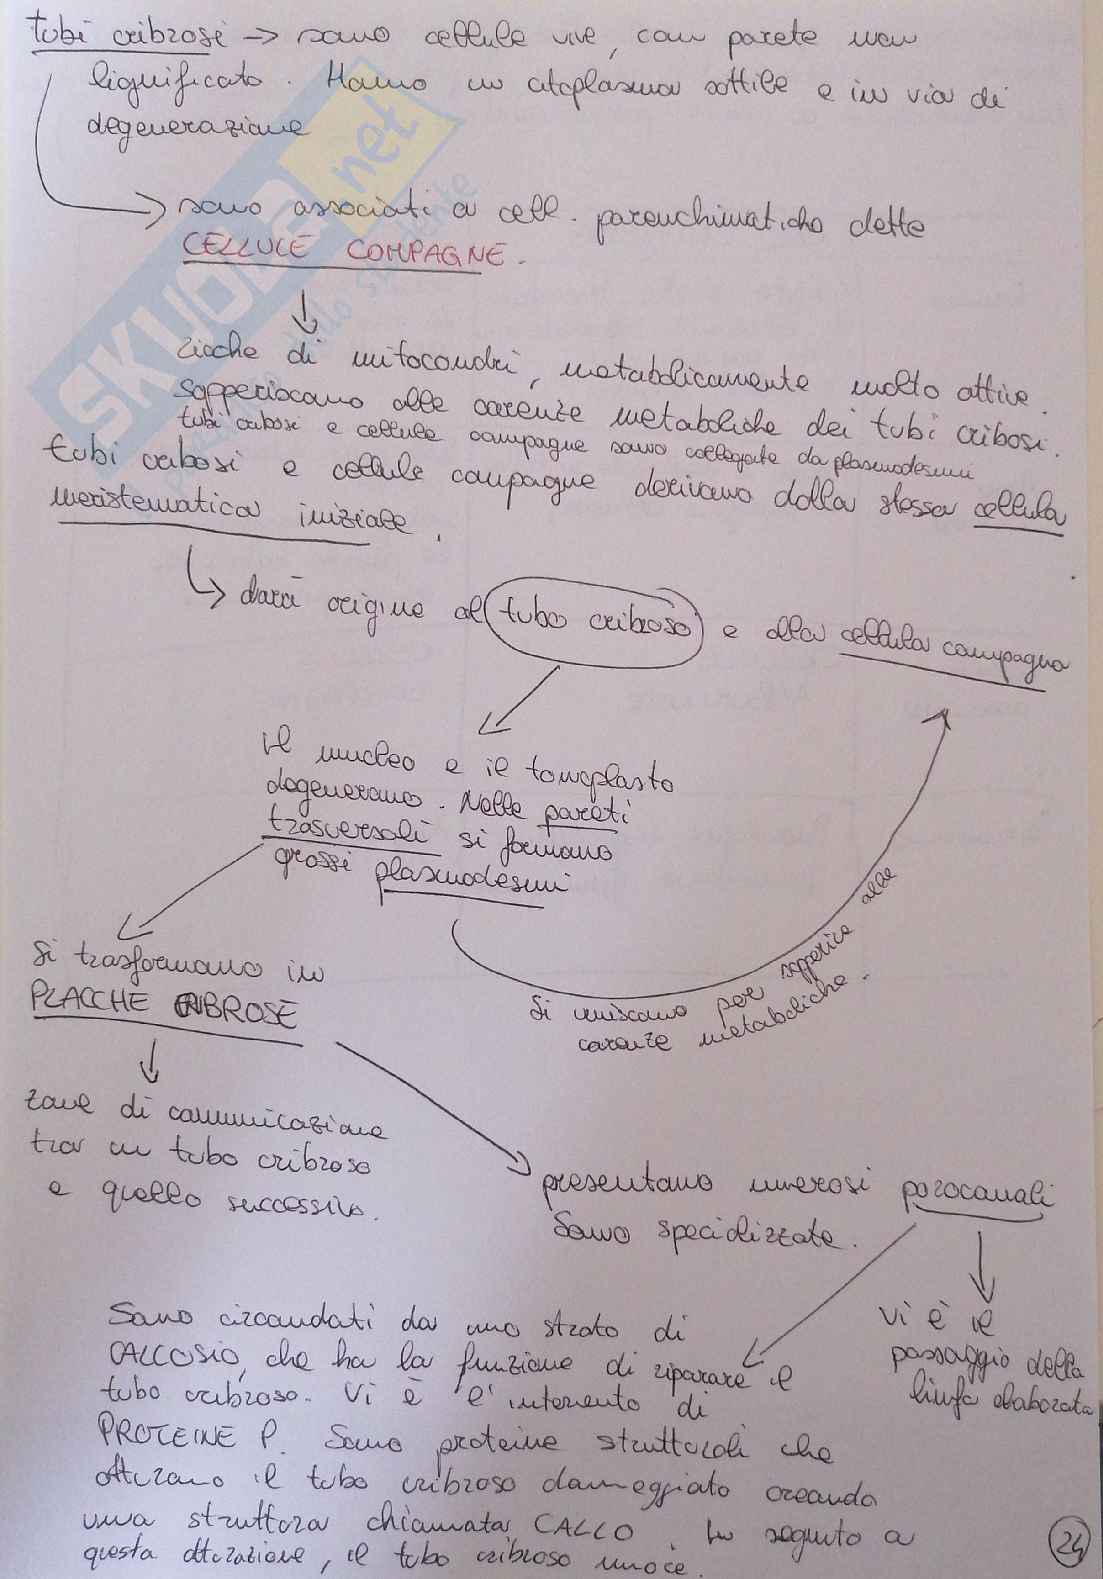 tubi cribrosi → sono cellule vive, con parete non
lignificata. Hanno un citoplasma sottile e in via di
degenerazione
sono associati a cell. parenchimatiche dette
CELLULE COMPAGNE.
ricche di mitocondri, metabolicamente molto attive.
sopperiscono alle carenze metaboliche dei tubi cribosi.
tubi cribosi e cellule compagne sono collegate da plasmodesmi
tubi cribosi e cellule compagne derivano dalla stessa cellula
meristematica iniziale.
darà origine al tubo cribroso e alla cellula compagna
il nucleo e il tonoplasto
degenerano. Nelle pareti
trasversali si formano
grossi plasmodesmi
Si uniscono per sopperire alle
carenze metaboliche.
Si trasformano in
PLACCHE CRIBROSE
zone di comunicazione
tra un tubo cribroso
e quello successivo.
presentano numerosi porocanali
Sono specializzate.
Vi è il
passaggio della
linfa elaborata
Sono circondati da uno strato di
CALLOSIO, che ha la funzione di riparare il
tubo cribroso. Vi è l'intervento di
PROTEINE P. Sono proteine strutturali che
otturano il tubo cribroso danneggiato creando
una struttura chiamata CALLO. In seguito a
questa otturazione, il tubo cribroso muore.
24
SKUOLA.net
dello studente